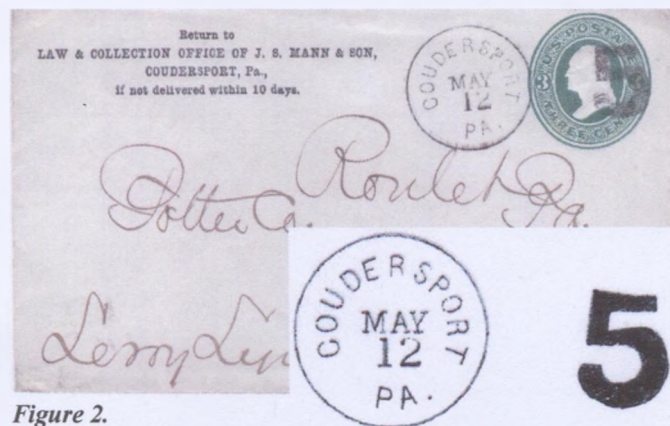 Return to
LAW & COLLECTION OFFICE OF J. S. MANN & SON,
COUDERSPORT, Pa.,
if not delivered within 10 days.
COUDERSPORT
MAY
12
PA.
U.S. POSTAGE
3
THREE CENTS
Roulet Pa.
Potter Co.
Leroy
COUDERSPORT
MAY
12
PA.
5
Figure 2.